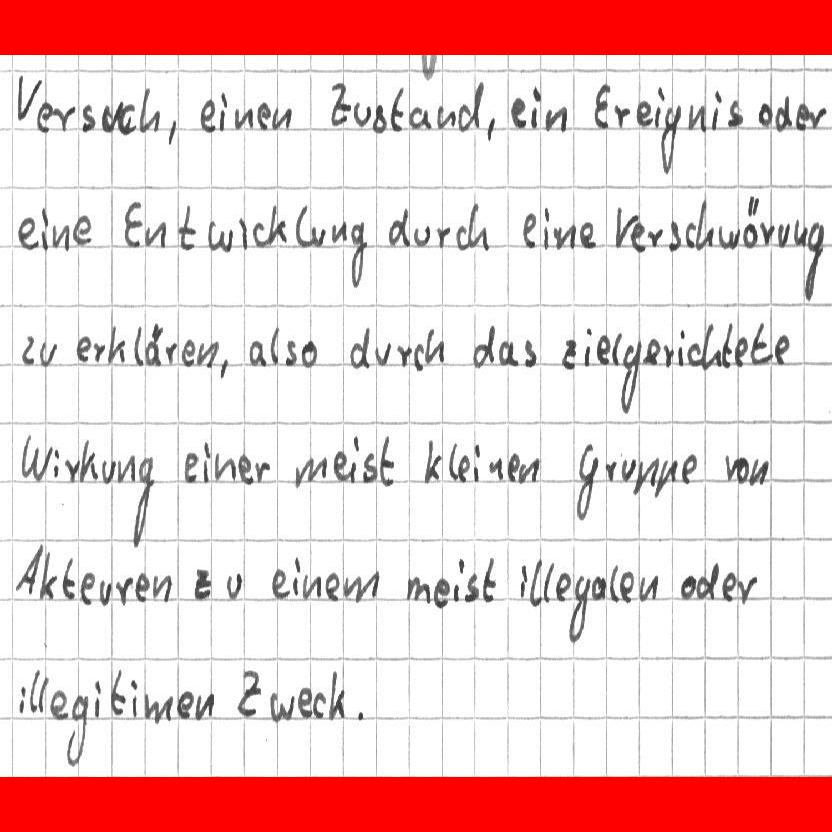 Versuch, einen Zustand, ein Ereignis oder
eine Entwicklung durch eine Verschwörung
zu erklären, also durch das zielgerichtete
Wirkung einer meist kleinen Gruppe von
Akteuren zu einem meist illegalen oder
illegitimen Zweck.